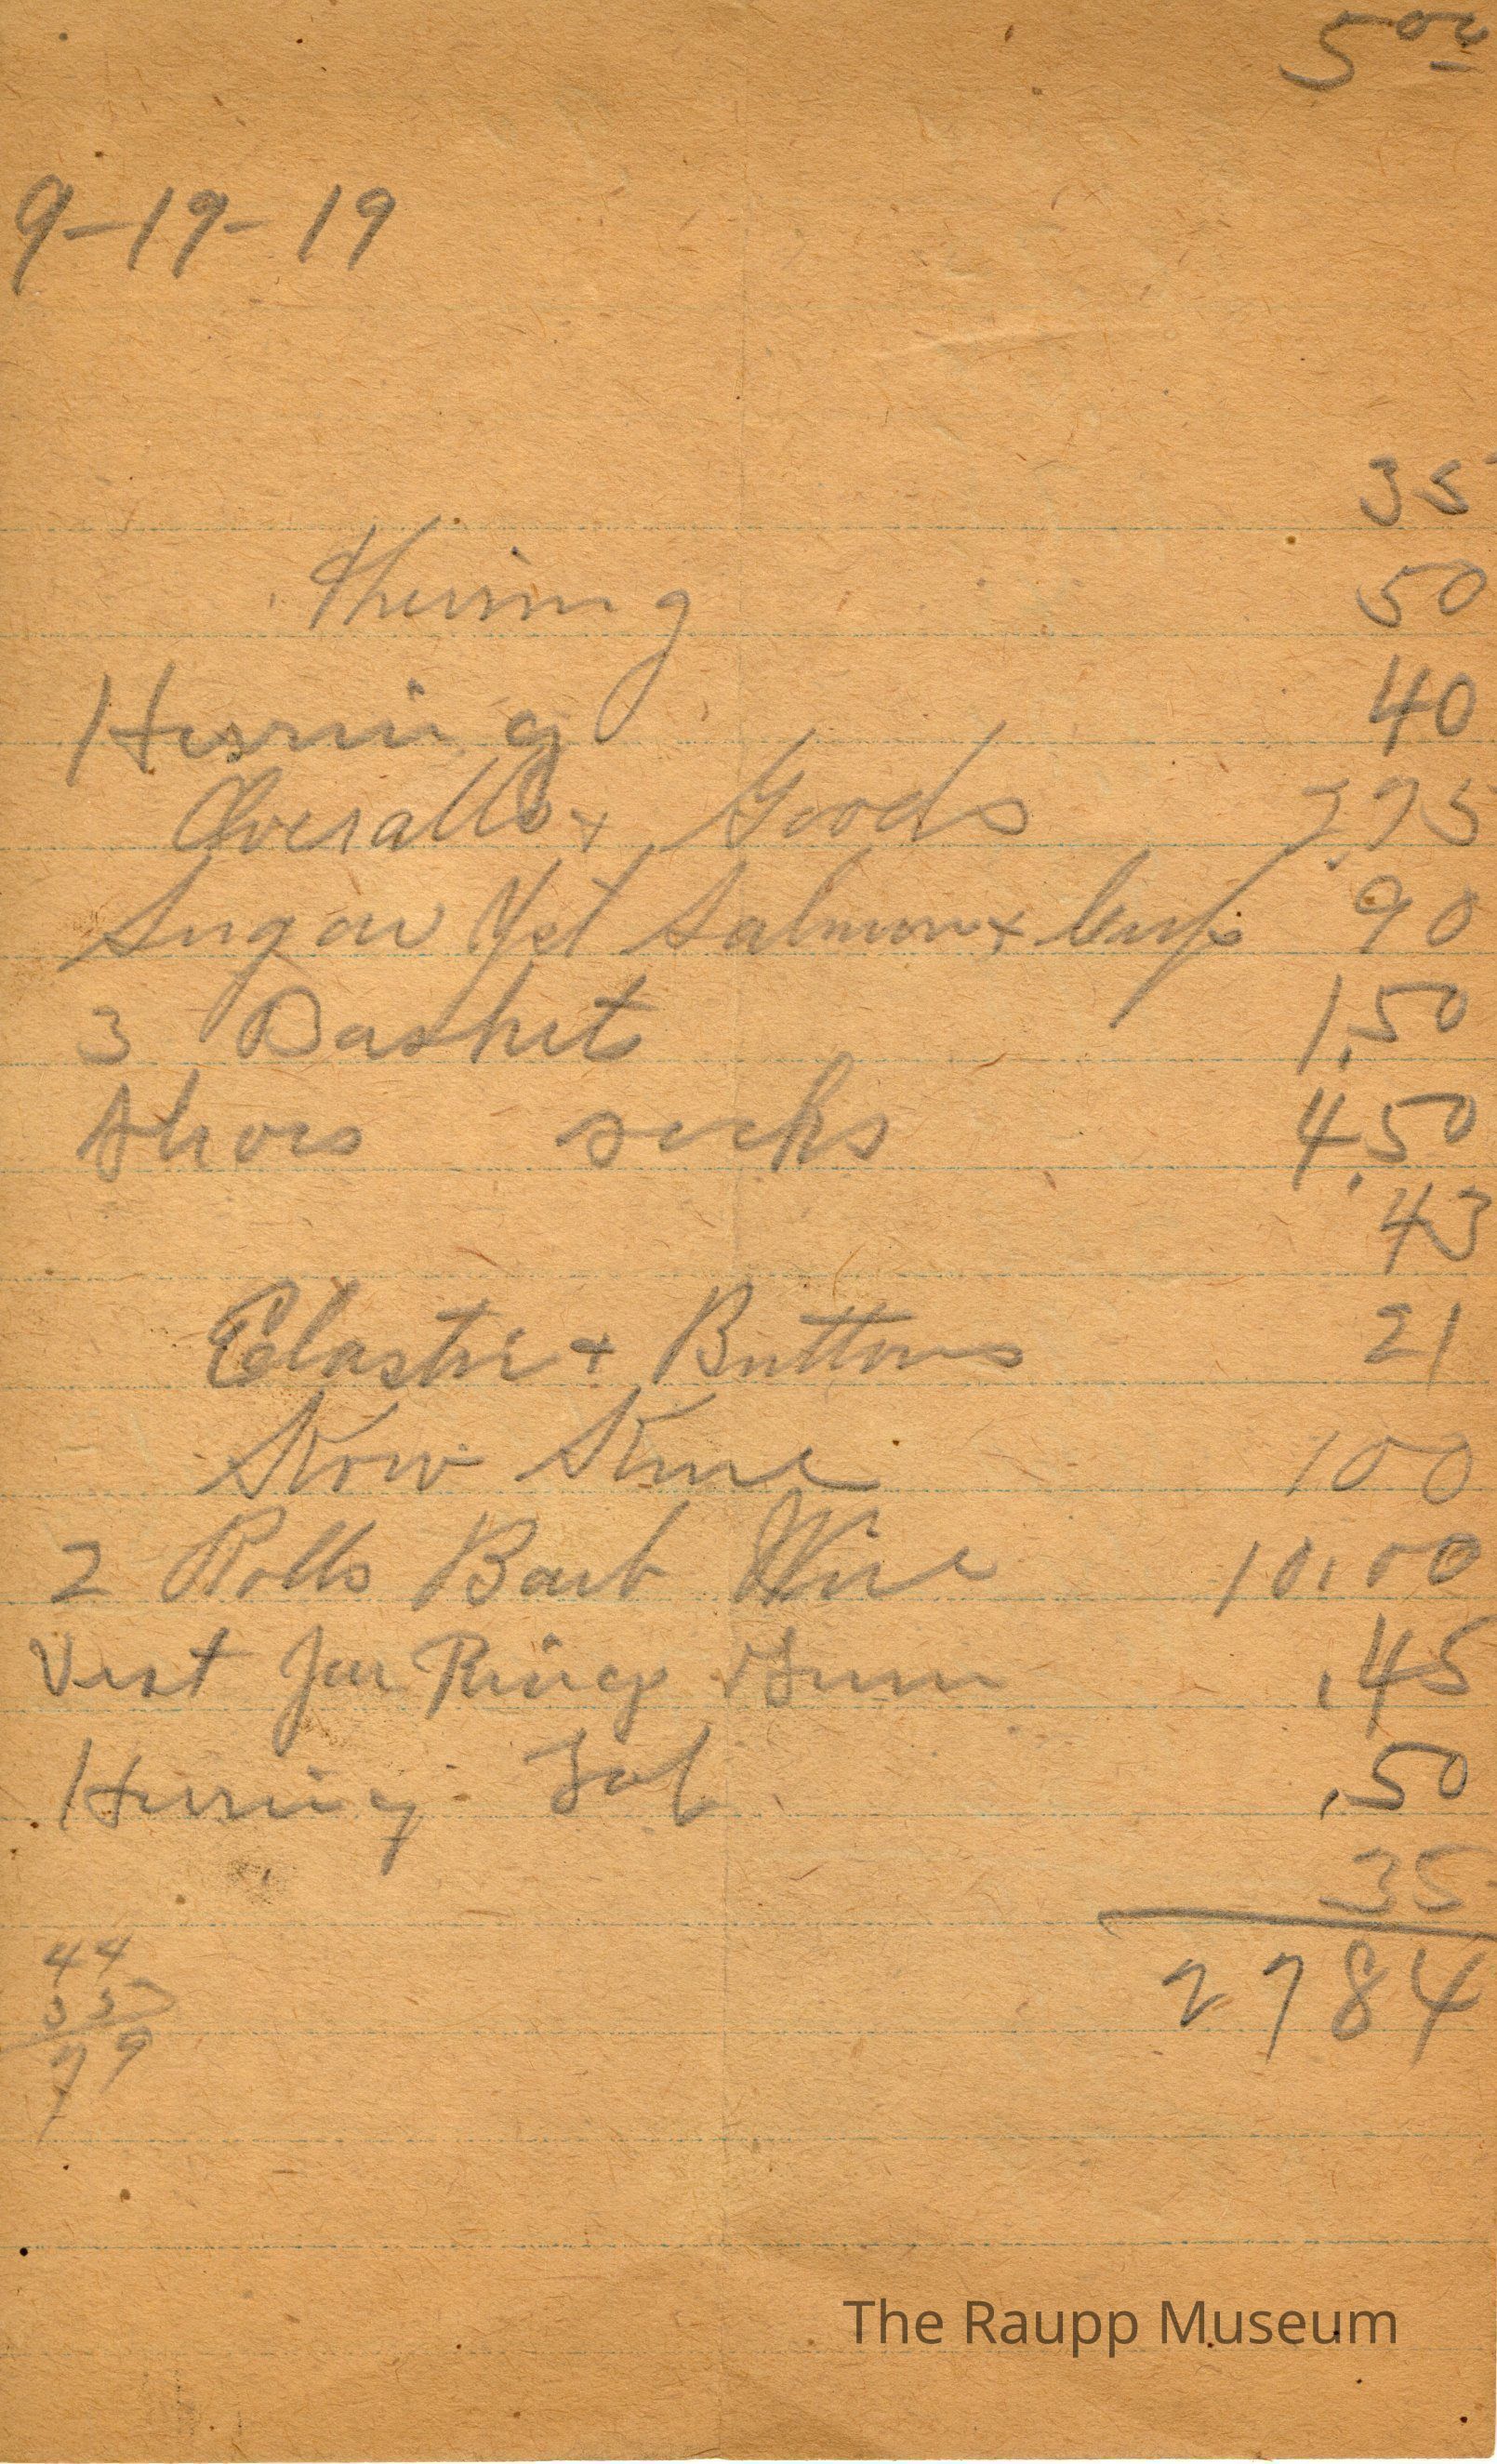 5 00
9-19-19
35
Herring 50
Herring 40
Overalls + Goods 7.75
Sugar Yst Salmon + Cups 90
3 Baskets 1.50
Shoes socks 4.50
43
Elastic + Buttons 21
100
2 Rolls Barb Wire 10.00
Vest Jar Rings Gum .45
Herring Tob .50
35
2784
44
35
79
The Raupp Museum